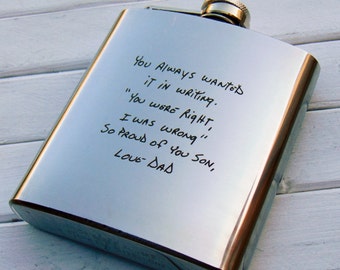 You Always Wanted
it in writing.
"You were Right,
I was wrong"
So Proud of You Son,
Love Dad